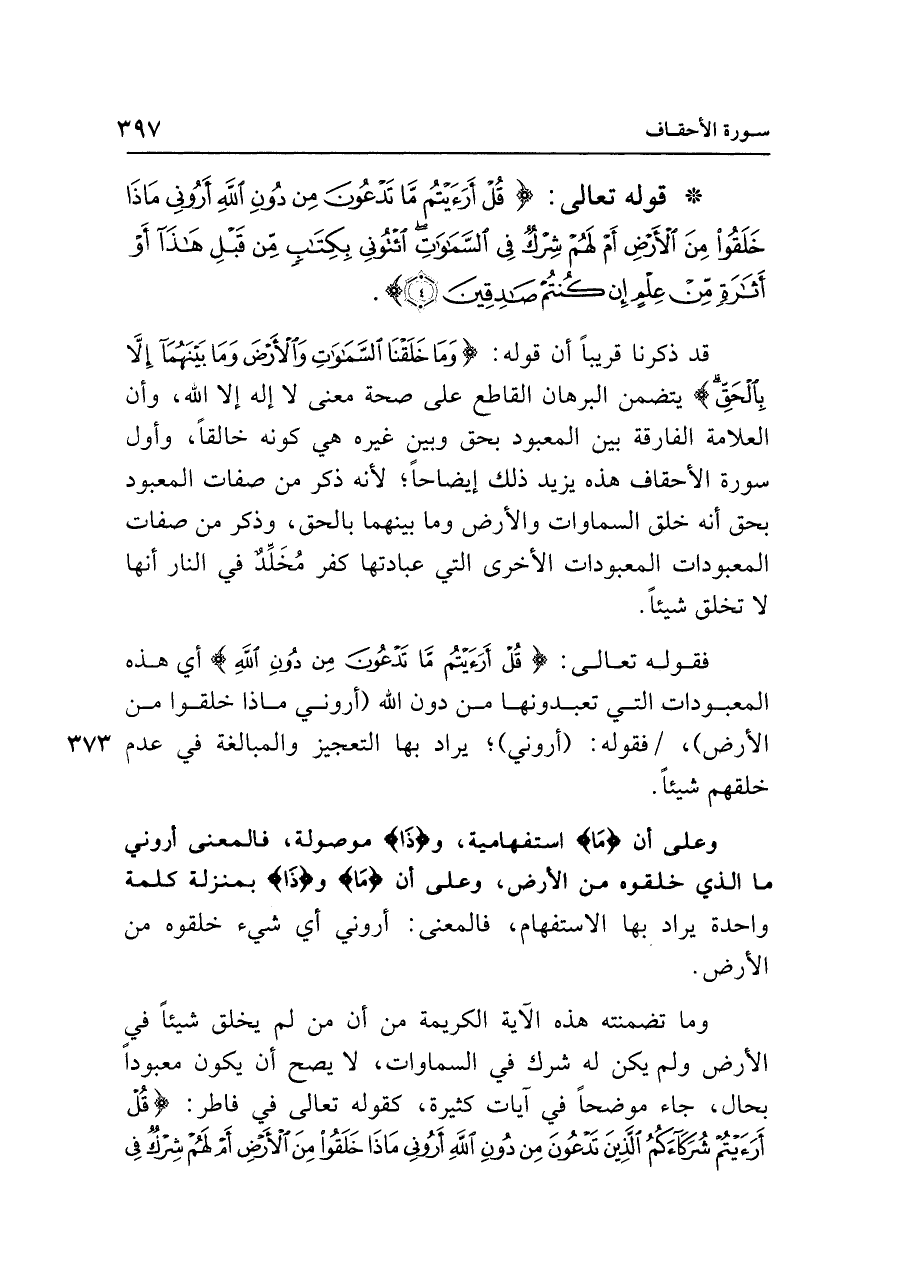 سورة الأحقاف ٣٩٧
* قوله تعالى: ﴿قُلْ أَرَءَيْتُم مَّا تَدْعُونَ مِن دُونِ ٱللَّهِ أَرُونِي مَاذَا
خَلَقُوا۟ مِنَ ٱلْأَرْضِ أَمْ لَهُمْ شِرْكٌ فِي ٱلسَّمَٰوَٰتِۖ ٱئْتُونِي بِكِتَٰبٍ مِّن قَبْلِ هَٰذَآ أَوْ
أَثَٰرَةٍ مِّنْ عِلْمٍ إِن كُنتُمْ صَٰدِقِينَ ﴿٤﴾﴾.
قد ذكرنا قريباً أن قوله: ﴿وَمَا خَلَقْنَا ٱلسَّمَٰوَٰتِ وَٱلْأَرْضَ وَمَا بَيْنَهُمَآ إِلَّا
بِٱلْحَقِّۗ﴾ يتضمن البرهان القاطع على صحة معنى لا إله إلا الله، وأن
العلامة الفارقة بين المعبود بحق وبين غيره هي كونه خالقاً، وأول
سورة الأحقاف هذه يزيد ذلك إيضاحاً؛ لأنه ذكر من صفات المعبود
بحق أنه خلق السماوات والأرض وما بينهما بالحق، وذكر من صفات
المعبودات المعبودات الأخرى التي عبادتها كفر مُخَلِّدٌ في النار أنها
لا تخلق شيئاً.
فقوله تعالى: ﴿قُلْ أَرَءَيْتُم مَّا تَدْعُونَ مِن دُونِ ٱللَّهِ﴾ أي هذه
المعبودات التي تعبدونها من دون الله (أروني ماذا خلقوا من
الأرض)، / فقوله: (أروني)؛ يراد بها التعجيز والمبالغة في عدم ٣٧٣
خلقهم شيئاً.
وعلى أن ﴿مَا﴾ استفهامية، و﴿ذَا﴾ موصولة، فالمعنى أروني
ما الذي خلقوه من الأرض، وعلى أن ﴿مَا﴾ و﴿ذَا﴾ بمنزلة كلمة
واحدة يراد بها الاستفهام، فالمعنى: أروني أي شيء خلقوه من
الأرض.
وما تضمنته هذه الآية الكريمة من أن من لم يخلق شيئاً في
الأرض ولم يكن له شرك في السماوات، لا يصح أن يكون معبوداً
بحال، جاء موضحاً في آيات كثيرة، كقوله تعالى في فاطر: ﴿قُلْ
أَرَءَيْتُمْ شُرَكَآءَكُمُ ٱلَّذِينَ تَدْعُونَ مِن دُونِ ٱللَّهِ أَرُونِي مَاذَا خَلَقُوا۟ مِنَ ٱلْأَرْضِ أَمْ لَهُمْ شِرْكٌ فِي